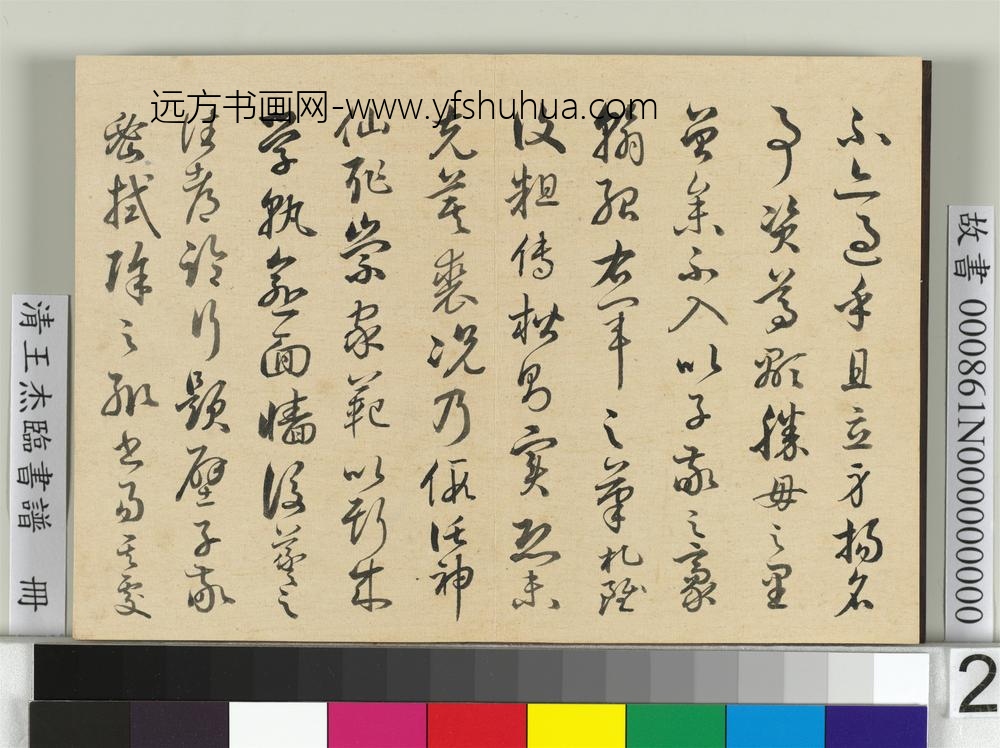 远方书画网-www.yfshuhua.com
不亦過乎且立身揚名
事資尊顯勝母之里
曾參不入以子敬之豪
翰紹右軍之筆札雖
復粗傳楷則實恐未
克箕裘況乃假託神
仙恥崇家範以斯成
學孰愈面牆後羲之
往都臨行題壁子敬
密拭除之輒書易其處
故書 000861N000000000
清王杰臨書譜 冊
2